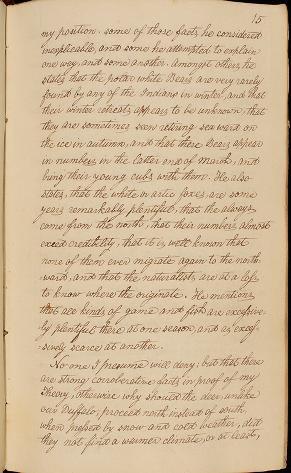 15
my position. some of those facts he considered
inexplicable, and some he attempted to explain
one way, and some another. Amongst others he
states that the polar white Bears are very rarely
found by any of the Indians in winter, and that
their winter retreats appears to be unknown, that
they are sometimes seen retiring sea ward on
the ice in autumn, and that these Bears appear
in numbers in the latter end of March, and
bring their young cubs with them. He also
states, that the white or artic foxes, are some
years remarkably plentiful, that the always
come from the north, that their numbers almost
exceed credibility, that it is well known that
none of them ever migrate again to the north-
-ward, and that the naturalists are at a loss
to know where the originate. He mentions
that all kinds of game and fish are excessive-
ly plentiful there at one season, and as exces-
-sively scarce at another.
No one I presume will deny, but that these
are strong corroborative facts in proof of my
Theory, otherwise why should the deer, unlike
our Buffalo, proceed north instead of south,
when pressed by snow and cold weather, did
they not find a warmer climate, or at least,